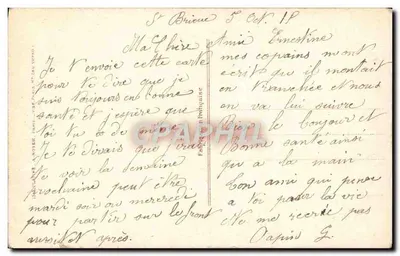 St Brieuc 5 Oct. 18
Ma Chère Amie Ernestine
Je t'envoie cette carte
pour te dire que je
suis toujours en bonne
santé et j'espère que
toi tu de même
Je te dirais que
te voir la semaine
prochaine peut être
mardi soir ou mercredi
pour partir sur le front
aussitôt après.
mes copains m'ont
écrit que il montait
en tranchée et nous
on va les suivre
Bien le bonjour et
Bonne santé ainsi
qu'a la main
Ton ami qui pense
a toi pour la vie
Ne me recrie pas
Papin G.
CPARAMA
Fabrication Française